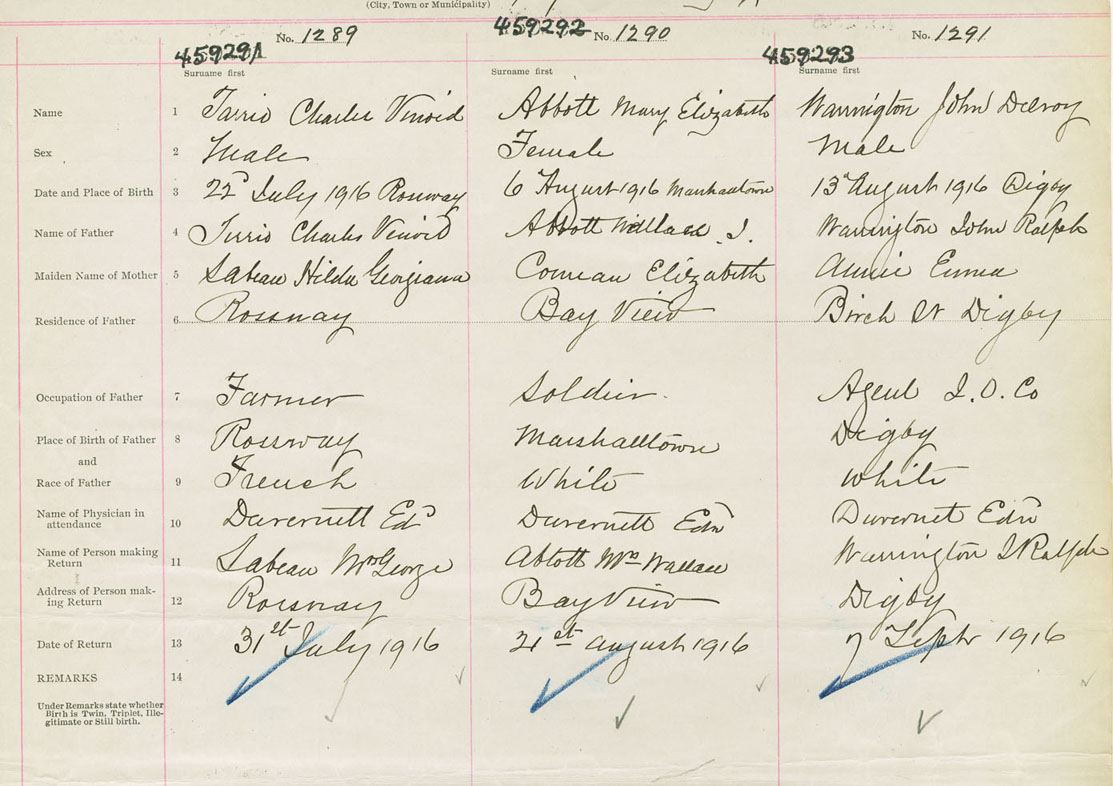 (City, Town or Municipality)
459291 No. 1289 459292 No. 1290 459293 No. 1291
Surname first Surname first Surname first
Name 1 Charles Abbott Mary Elizabeth Warrington John Delroy
Sex 2 Male Female Male
Date and Place of Birth 3 22d July 1916 Rossway 6 August 1916 Marshalltown 13th August 1916 Digby
Name of Father 4 Charles Abbott Wallace J. Warrington John Ralph
Maiden Name of Mother 5 Sabean Hilda Georgiana Comeau Elizabeth Annie Emma
Residence of Father 6 Rossway Bay View Birch St Digby
Occupation of Father 7 Farmer Soldier. Agent I.O.Co
Place of Birth of Father 8 Rossway Marshalltown Digby
and
Race of Father 9 French White White
Name of Physician in
attendance 10 Duvernett Ed Duvernett Edn Duvernet Edn
Name of Person making
Return 11 Sabean Mrs George Abbott Mrs Wallace Warrington J Ralph
Address of Person mak-
ing Return 12 Rossway Bay View Digby
Date of Return 13 31st July 1916 21st August 1916 7 Sept 1916
REMARKS 14
Under Remarks state whether
Birth is Twin, Triplet, Ille-
gitimate or Still birth.